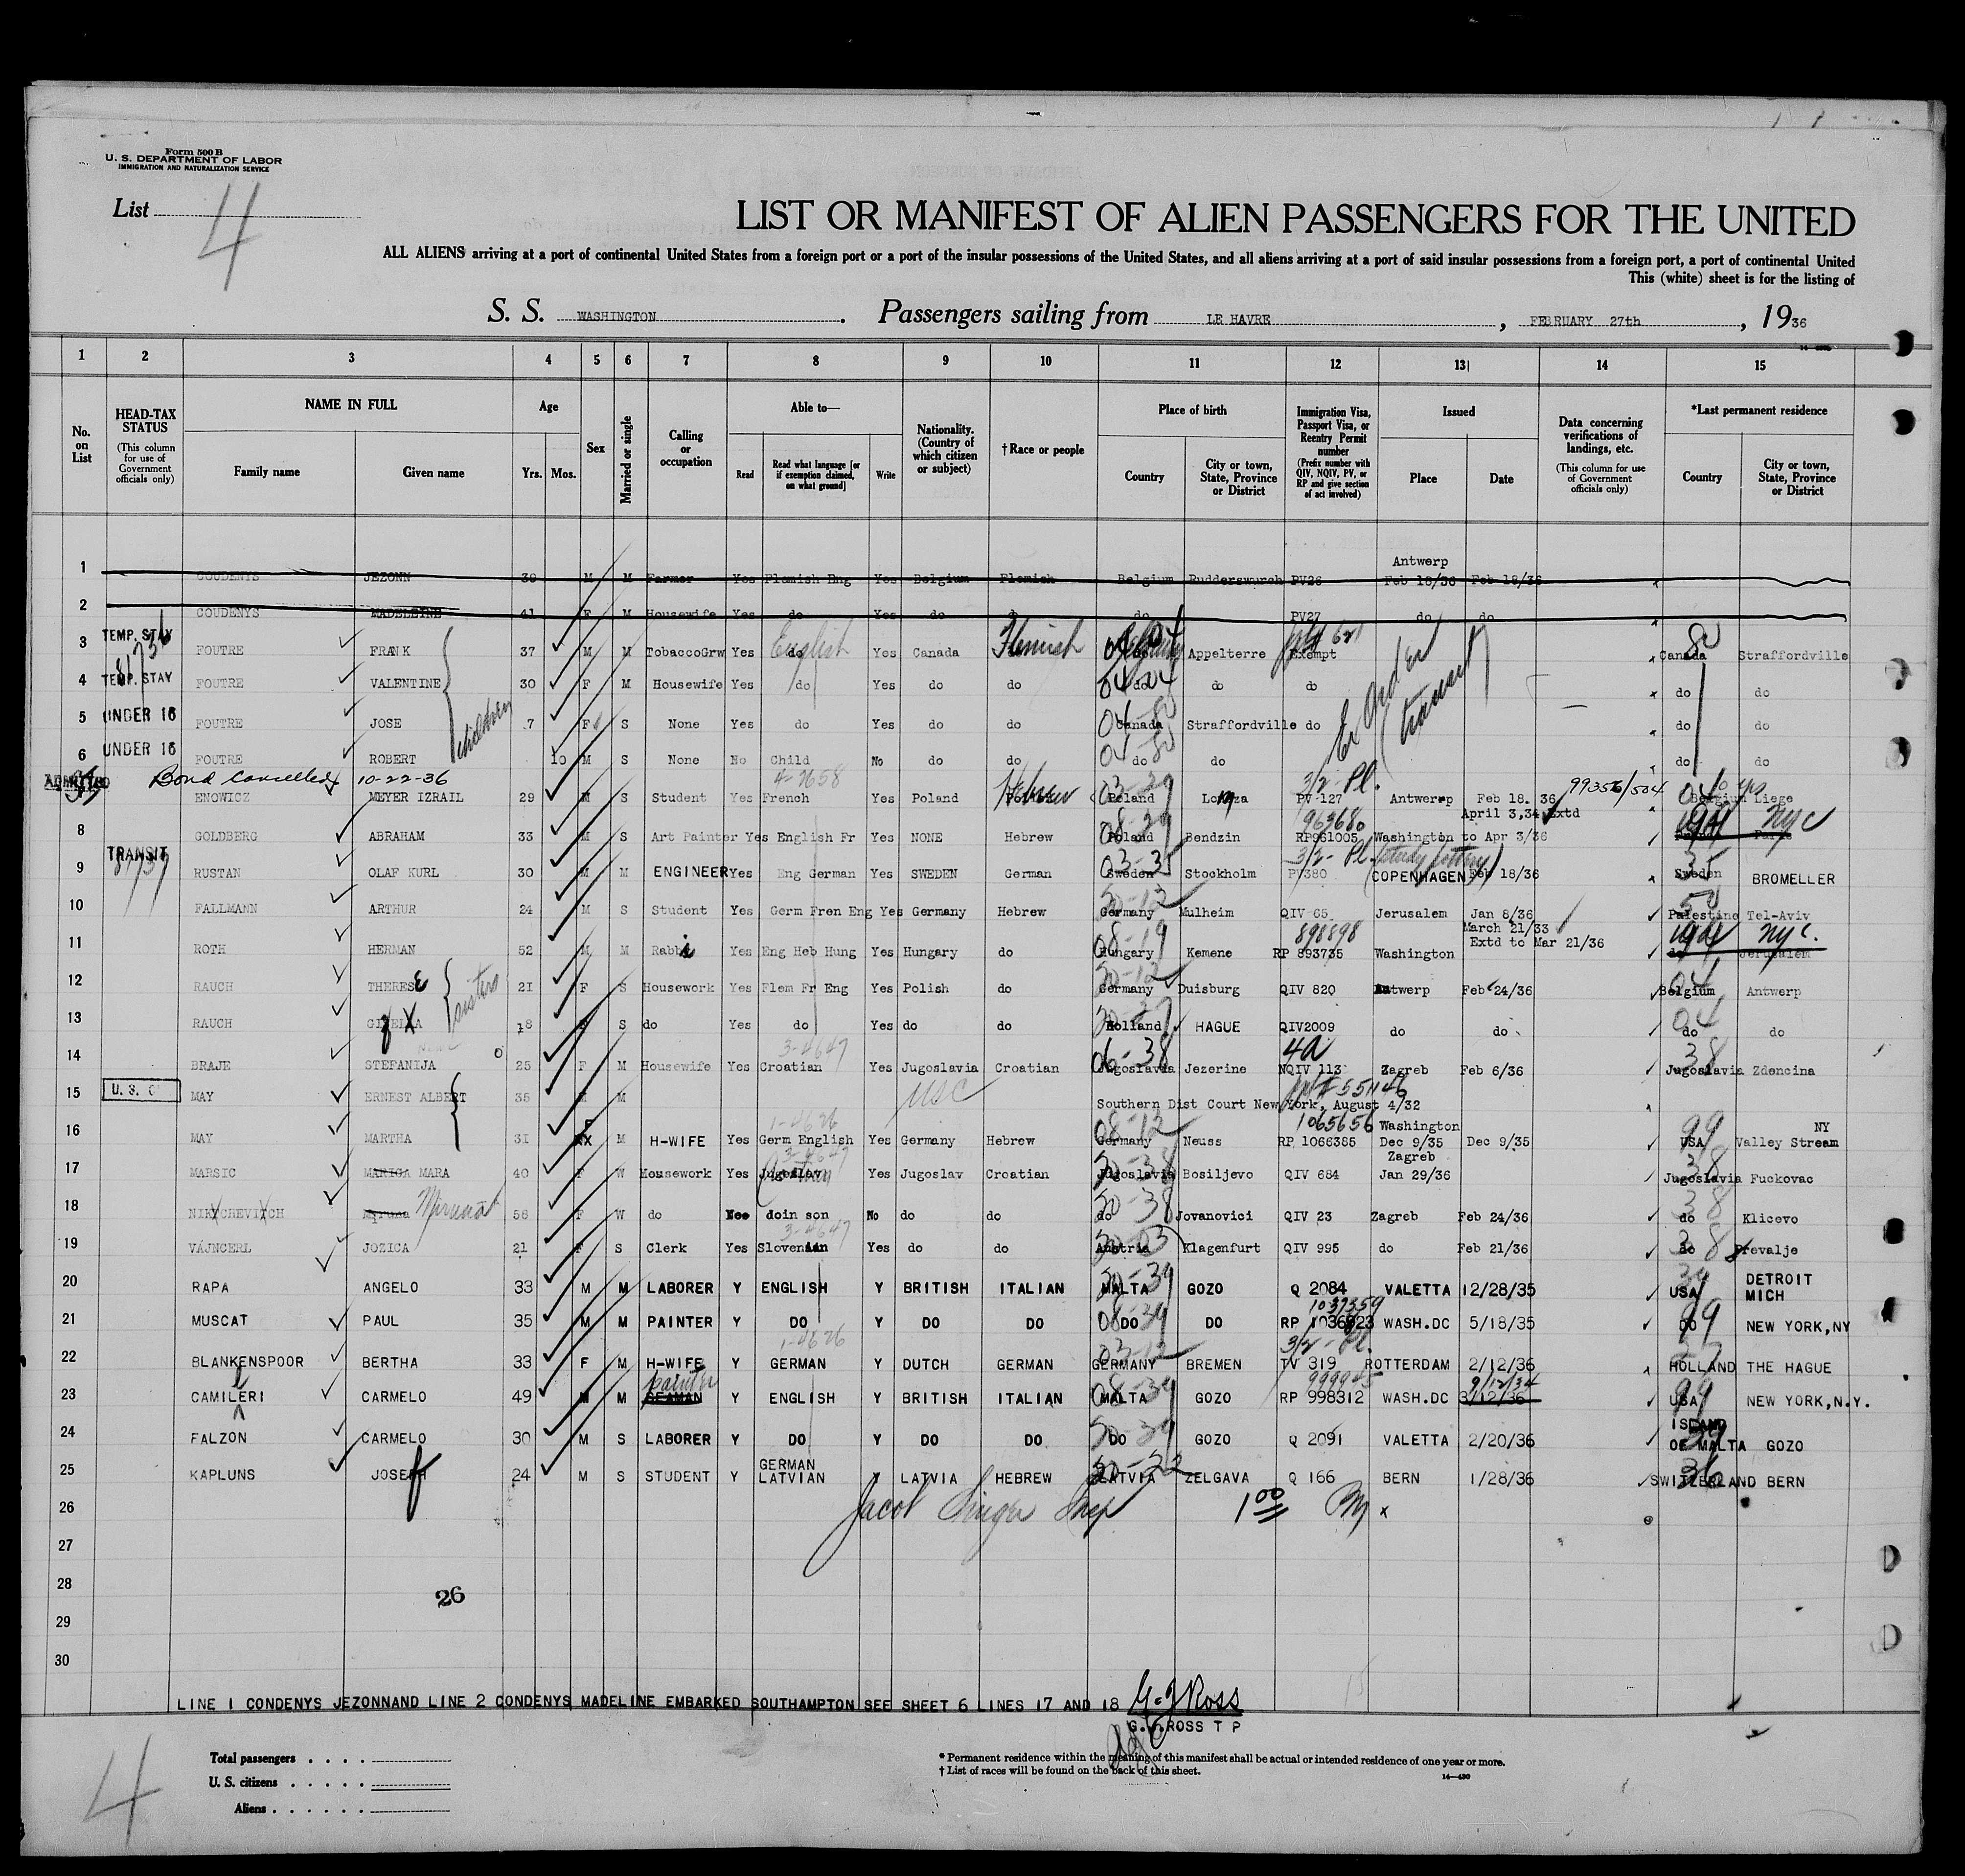 Form 500 B
U. S. DEPARTMENT OF LABOR
IMMIGRATION AND NATURALIZATION SERVICE
List 4
LIST OR MANIFEST OF ALIEN PASSENGERS FOR THE UNITED
ALL ALIENS arriving at a port of continental United States from a foreign port or a port of the insular possessions of the United States, and all aliens arriving at a port of said insular possessions from a foreign port, a port of continental United
This (white) sheet is for the listing of
S. S. WASHINGTON. Passengers sailing from LE HAVRE, FEBRUARY 27th, 1936
1 2 3 4 5 6 7 8 9 10 11 12 13 14 15
No. on List
HEAD-TAX STATUS (This column for use of Government officials only)
NAME IN FULL Family name Given name
Age Yrs. Mos.
Sex
Married or single
Calling or occupation
Able to— Read Read what language [or if exemption claimed, on what ground] Write
Nationality. (Country of which citizen or subject)
†Race or people
Place of birth Country City or town, State, Province or District
Immigration Visa, Passport Visa, or Reentry Permit number (Prefix number with QIV, NQIV, PV, or RP and give section of act involved)
Issued Place Date
Data concerning verifications of landings, etc. (This column for use of Government officials only)
*Last permanent residence Country City or town, State, Province or District
Antwerp
1 COUDENYS JEZONN 39 M M Farmer Yes Flemish Eng Yes Belgium Flemish Belgium Rudderswurch PV26 Feb 18/36 Feb 18/36
2 COUDENYS MADELEINE 41 F M Housewife Yes do Yes do do do PV27 do do
3 TEMP. STAY FOUTRE FRANK 37 M M TobaccoGrw Yes do English Yes Canada Flemish Appelterre Exempt Canada Straffordville
81736
4 TEMP. STAY FOUTRE VALENTINE 30 F M Housewife Yes do Yes do do do do do do do
5 UNDER 16 FOUTRE JOSE 7 F S None Yes do Yes do do Canada Straffordville do do do
children
Ex Order (transit)
6 UNDER 16 FOUTRE ROBERT 10 M S None No Child No do do do do do do
ADMITTED Bond Cancelled 10-22-36 4-2658 Hebrew 3/2- Pl. 99356/504 10 yrs
ENOWICZ MEYER IZRAIL 29 M S Student Yes French Yes Poland Poland Lomza PV 127 Antwerp Feb 18. 36 Belgium Liege
963680 April 3,34 Extd NYC
8 GOLDBERG ABRAHAM 33 M S Art Painter Yes English Fr Yes NONE Hebrew Poland Bendzin RP961005 Washington to Apr 3/36
TRANSIT 81737 3/2- Pl.
9 RUSTAN OLAF KURL 30 M M ENGINEER Yes Eng German Yes SWEDEN German Sweden Stockholm PV380 COPENHAGEN Feb 18/36 Sweden BROMELLER
10 FALLMANN ARTHUR 24 M S Student Yes Germ Fren Eng Yes Germany Hebrew Germany Mulheim QIV 65 Jerusalem Jan 8/36 Palestine Tel-Aviv
898898 March 21/33 Extd to Mar 21/36 NYC.
11 ROTH HERMAN 52 M M Rabbi Yes Eng Heb Hung Yes Hungary do Hungary Kemene RP 893735 Washington do Jerusalem
12 RAUCH THERESE 21 F S Housework Yes Flem Fr Eng Yes Polish do Germany Duisburg QIV 820 Antwerp Feb 24/36 Belgium Antwerp
sisters
13 RAUCH GIZELLA 18 S do Yes do Yes do do Holland HAGUE QIV2009 do do do do
3-4647 4a
14 BRAJE STEFANIJA 25 F M Housewife Yes Croatian Yes Jugoslavia Croatian Jugoslavia Jezerine NQIV 113 Zagreb Feb 6/36 Jugoslavia Zdencina
15 U. S. C MAY ERNEST ALBERT 35 M USC Southern Dist Court New York, August 4/32
1-4626 1065656 Washington NY
16 MAY MARTHA 31 F M H-WIFE Yes Germ English Yes Germany Hebrew Germany Neuss RP 1066385 Dec 9/35 Dec 9/35 USA Valley Stream
3-4647 Zagreb
17 MARSIC MARICA MARA 40 F W Housework Yes Jugoslav Croatian Yes Jugoslav Croatian Jugoslavia Bosiljevo QIV 684 Jan 29/36 Jugoslavia Fuckovac
18 Miruna 58 F W do join son No do do do Jovanovici QIV 23 Zagreb Feb 24/36 do Klicevo
3-4647
19 VAJNCERL JOZICA 21 F S Clerk Yes Slovenian Yes do do Austria Klagenfurt QIV 995 do Feb 21/36 do Prevalje
20 RAPA ANGELO 33 M M LABORER Y ENGLISH Y BRITISH ITALIAN MALTA GOZO Q 2084 VALETTA 12/28/35 USA DETROIT MICH
1037359
21 MUSCAT PAUL 35 M M PAINTER Y DO Y DO DO DO DO RP 1036823 WASH.DC 5/18/35 DO NEW YORK,NY
1-4626 3/2- Pl.
22 BLANKENSPOOR BERTHA 33 F M H-WIFE Y GERMAN Y DUTCH GERMAN GERMANY BREMEN TV 319 ROTTERDAM 2/12/36 HOLLAND THE HAGUE
painter 999945 9/12/34
23 CAMILERI CARMELO 49 M M SEAMAN Y ENGLISH Y BRITISH ITALIAN MALTA GOZO RP 998312 WASH.DC 3/12/36 USA NEW YORK,N.Y.
24 FALZON CARMELO 30 M S LABORER Y DO Y DO DO DO GOZO Q 2091 VALETTA 2/20/36 ISLAND OF MALTA GOZO
25 KAPLUNS JOSEF 24 M S STUDENT Y GERMAN LATVIAN Y LATVIA HEBREW LATVIA ZELGAVA Q 166 BERN 1/28/36 SWITZERLAND BERN
26 Jacob Singer Insp 1 00
27
28
26
29
30
LINE 1 CONDENYS JEZONNAND LINE 2 CONDENYS MADELINE EMBARKED SOUTHAMPTON SEE SHEET 6 LINES 17 AND 18 G.J Ross
G.J.ROSS T P
4
Total passengers
U. S. citizens
Aliens
* Permanent residence within the meaning of this manifest shall be actual or intended residence of one year or more.
† List of races will be found on the back of this sheet.
14—430